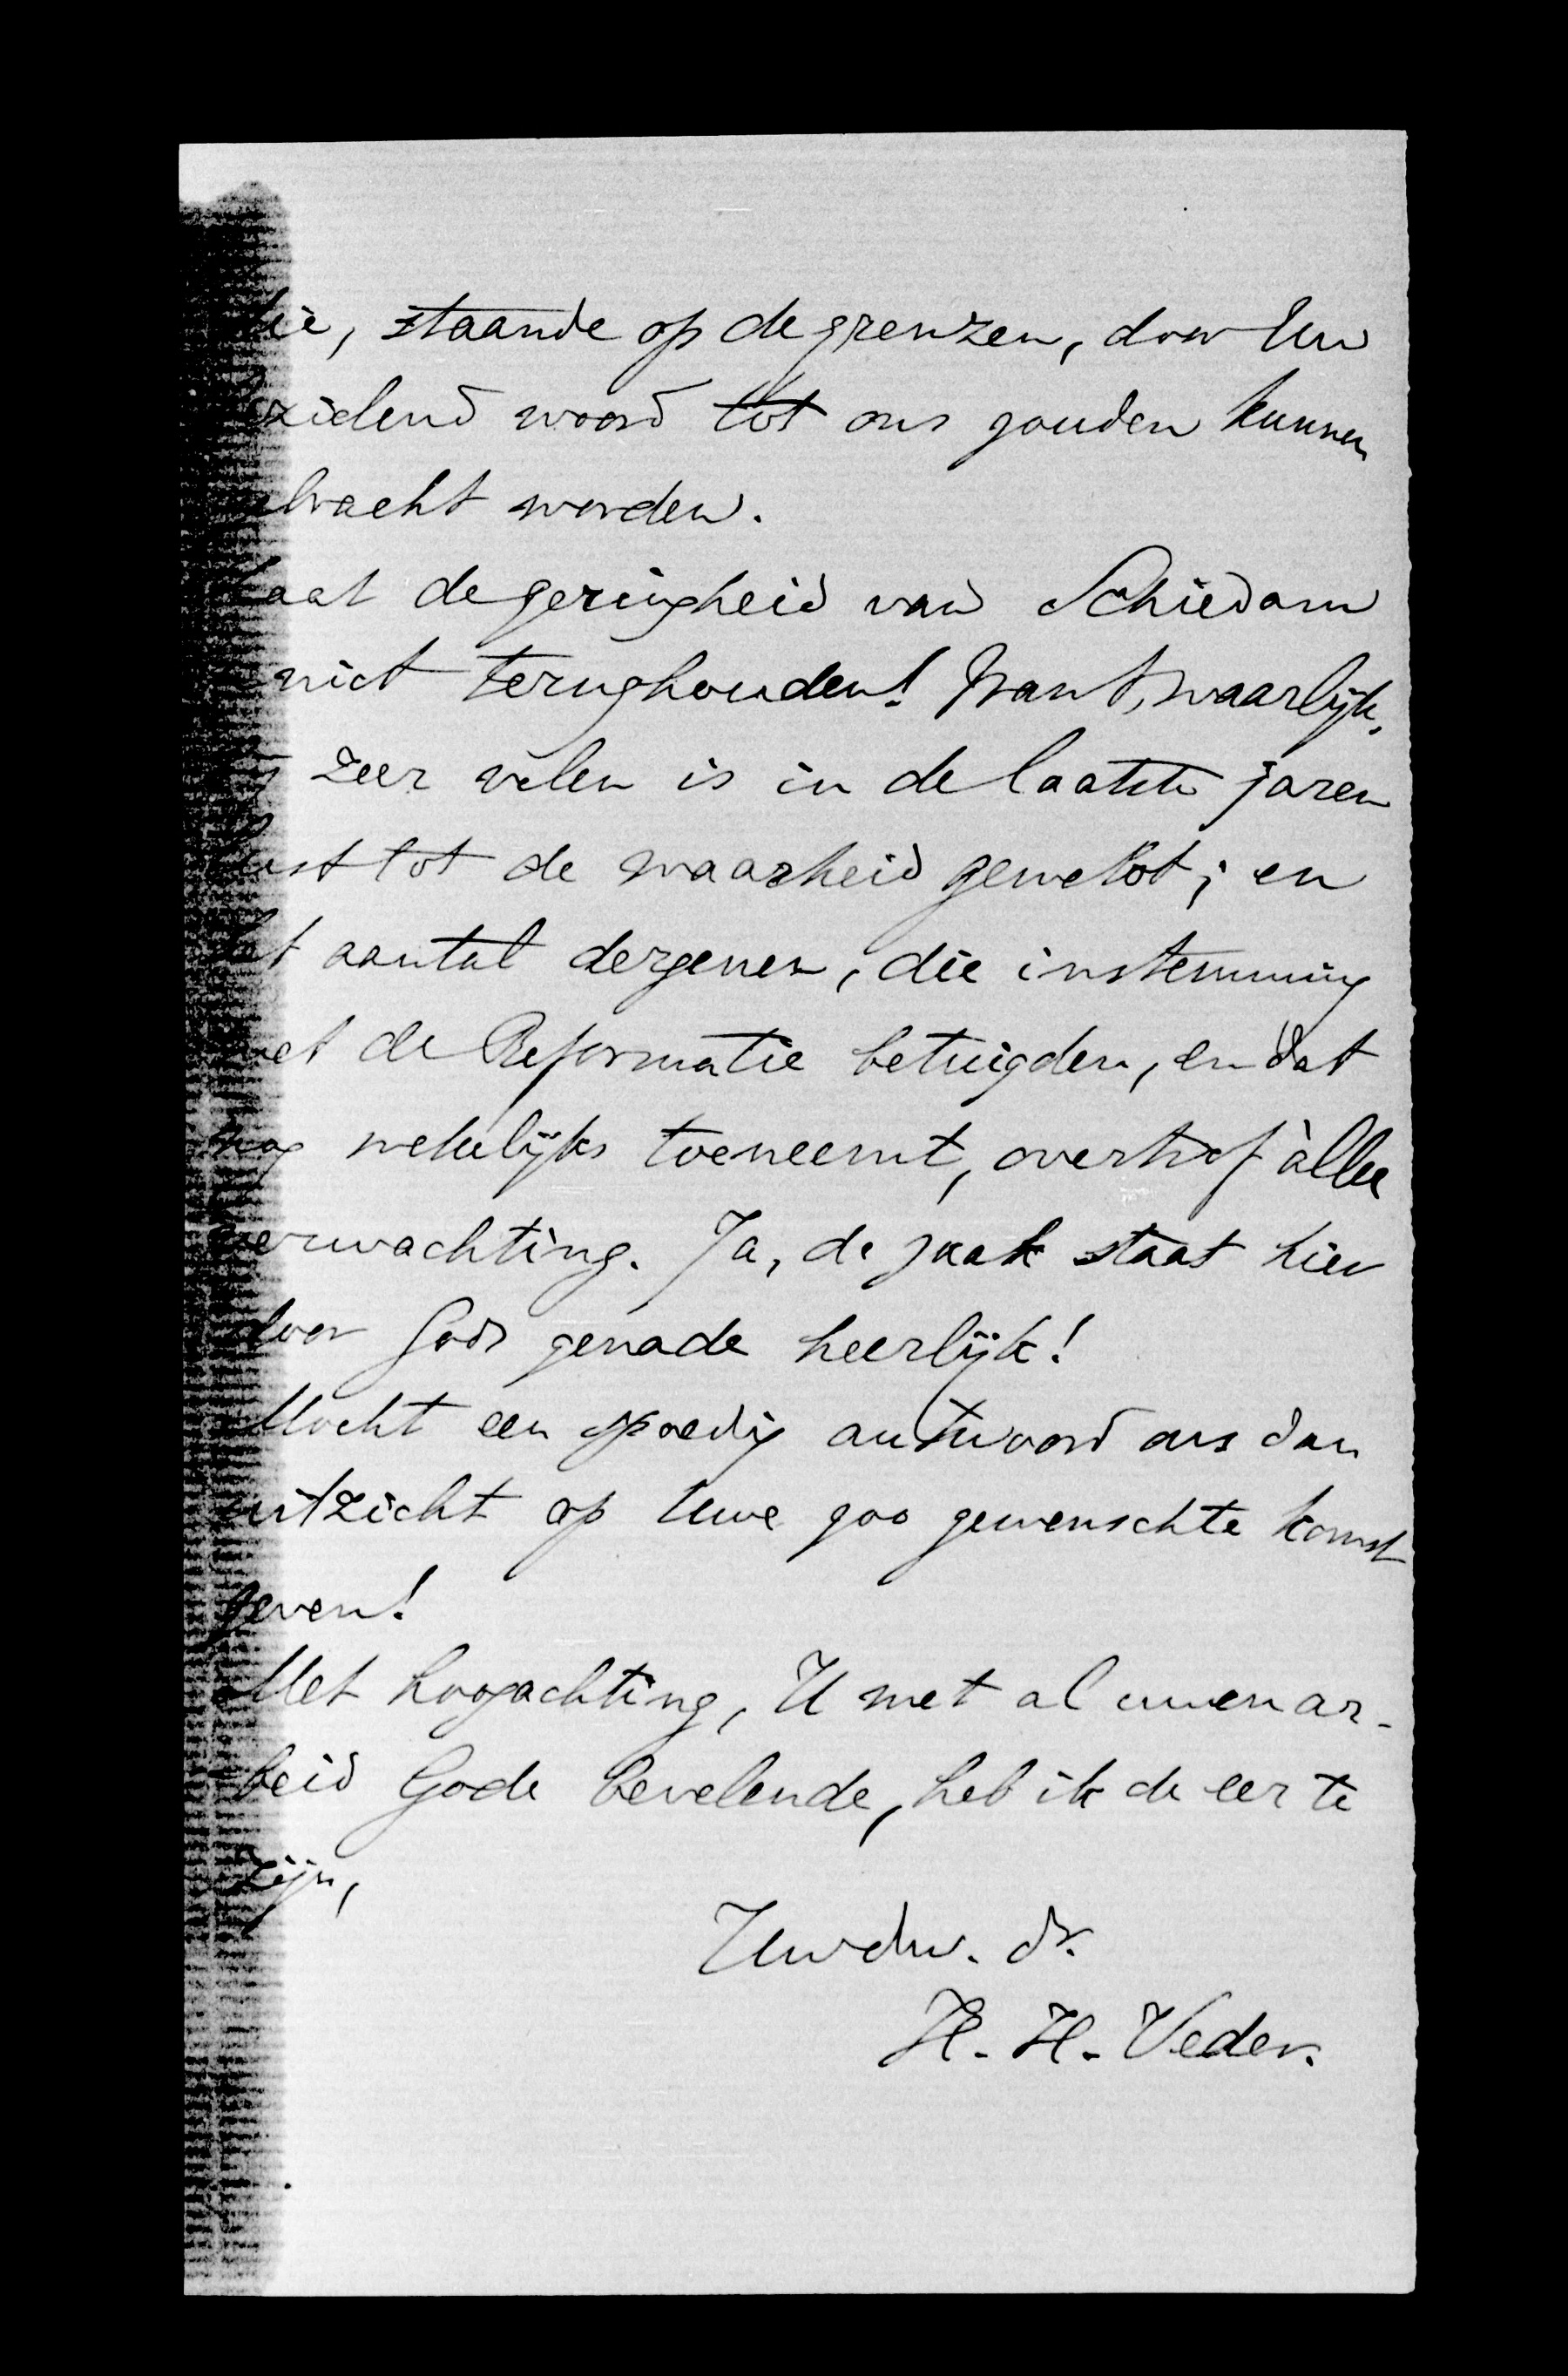 die, staande op de grenzen, door Uw
bezielend woord tot ons zouden kunnen
gebracht worden.
Laat de geringheid van Schiedam
niet terughouden! Want, waarlijk,
bij zeer velen is in de laatste jaren
lust tot de waarheid gewekt; en
het aantal dergenen, die instemming
met de Reformatie betuigden, en dat
nog wekelijks toeneemt, overtrof àlle
verwachting. Ja, de zaak staat hier
door Gods genade heerlijk!
Mocht een spoedig antwoord ons dan
uitzicht op Uwe zoo gewenschte komst
geven!
Met hoogachting, U met al uwen ar-
beid Gode bevelende, heb ik de eer te
zijn,
Uwdw. dr.
H. H. Veder.